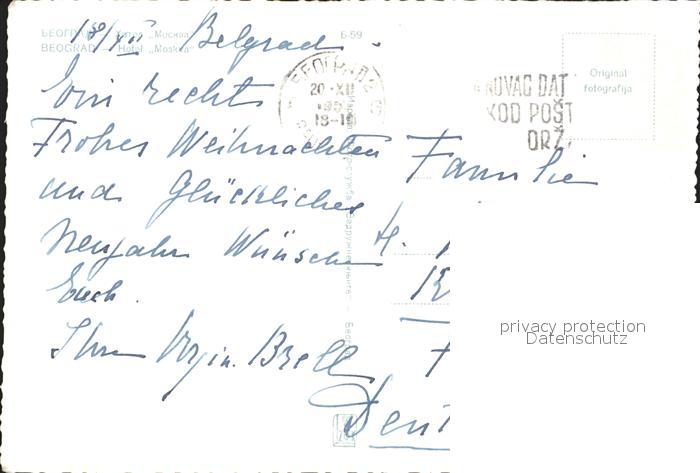 БЕОГРАД — Хотел „Москва“ Б-59
BEOGRAD — Hotel „Moskva“
18/XII Belgrad.
Ein recht
Frohes Weihnachten
und Glückliches
Neujahr Wünschen
Euch.
Ihre Brell
БЕОГРАД 2
20 -XII
18-19
NOVAC DAT
KOD POŠT
DRŽ
Original
fotografija
Familie
H.
Deut
privacy protection
Datenschutz